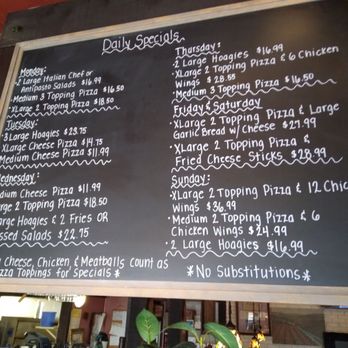 Daily Specials
Monday:
2 Large Italian Chef or
Antipasto Salads $16.99
Medium 3 Topping Pizza $16.50
XLarge 2 Topping Pizza $18.50
Tuesday:
3 Large Hoagies $23.75
XLarge Cheese Pizza $14.75
Medium Cheese Pizza $11.99
Wednesday:
Medium Cheese Pizza $11.99
Large 2 Topping Pizza $18.50
Large Hoagies & 2 Fries OR
Tossed Salads $22.75
Cheese, Chicken, & Meatballs count as
Pizza Toppings for Specials *
Thursday:
2 Large Hoagies $16.99
XLarge 2 Topping Pizza & 6 Chicken
Wings $28.55
Medium 3 Topping Pizza $16.50
Friday & Saturday
XLarge 2 Topping Pizza & Large
Garlic Bread w/ Cheese $27.99
XLarge 2 Topping Pizza &
Fried Cheese Sticks $28.99
Sunday:
XLarge 2 Topping Pizza & 12 Chicken
Wings $36.99
Medium 2 Topping Pizza & 6
Chicken Wings $24.99
2 Large Hoagies $16.99
*No Substitutions*